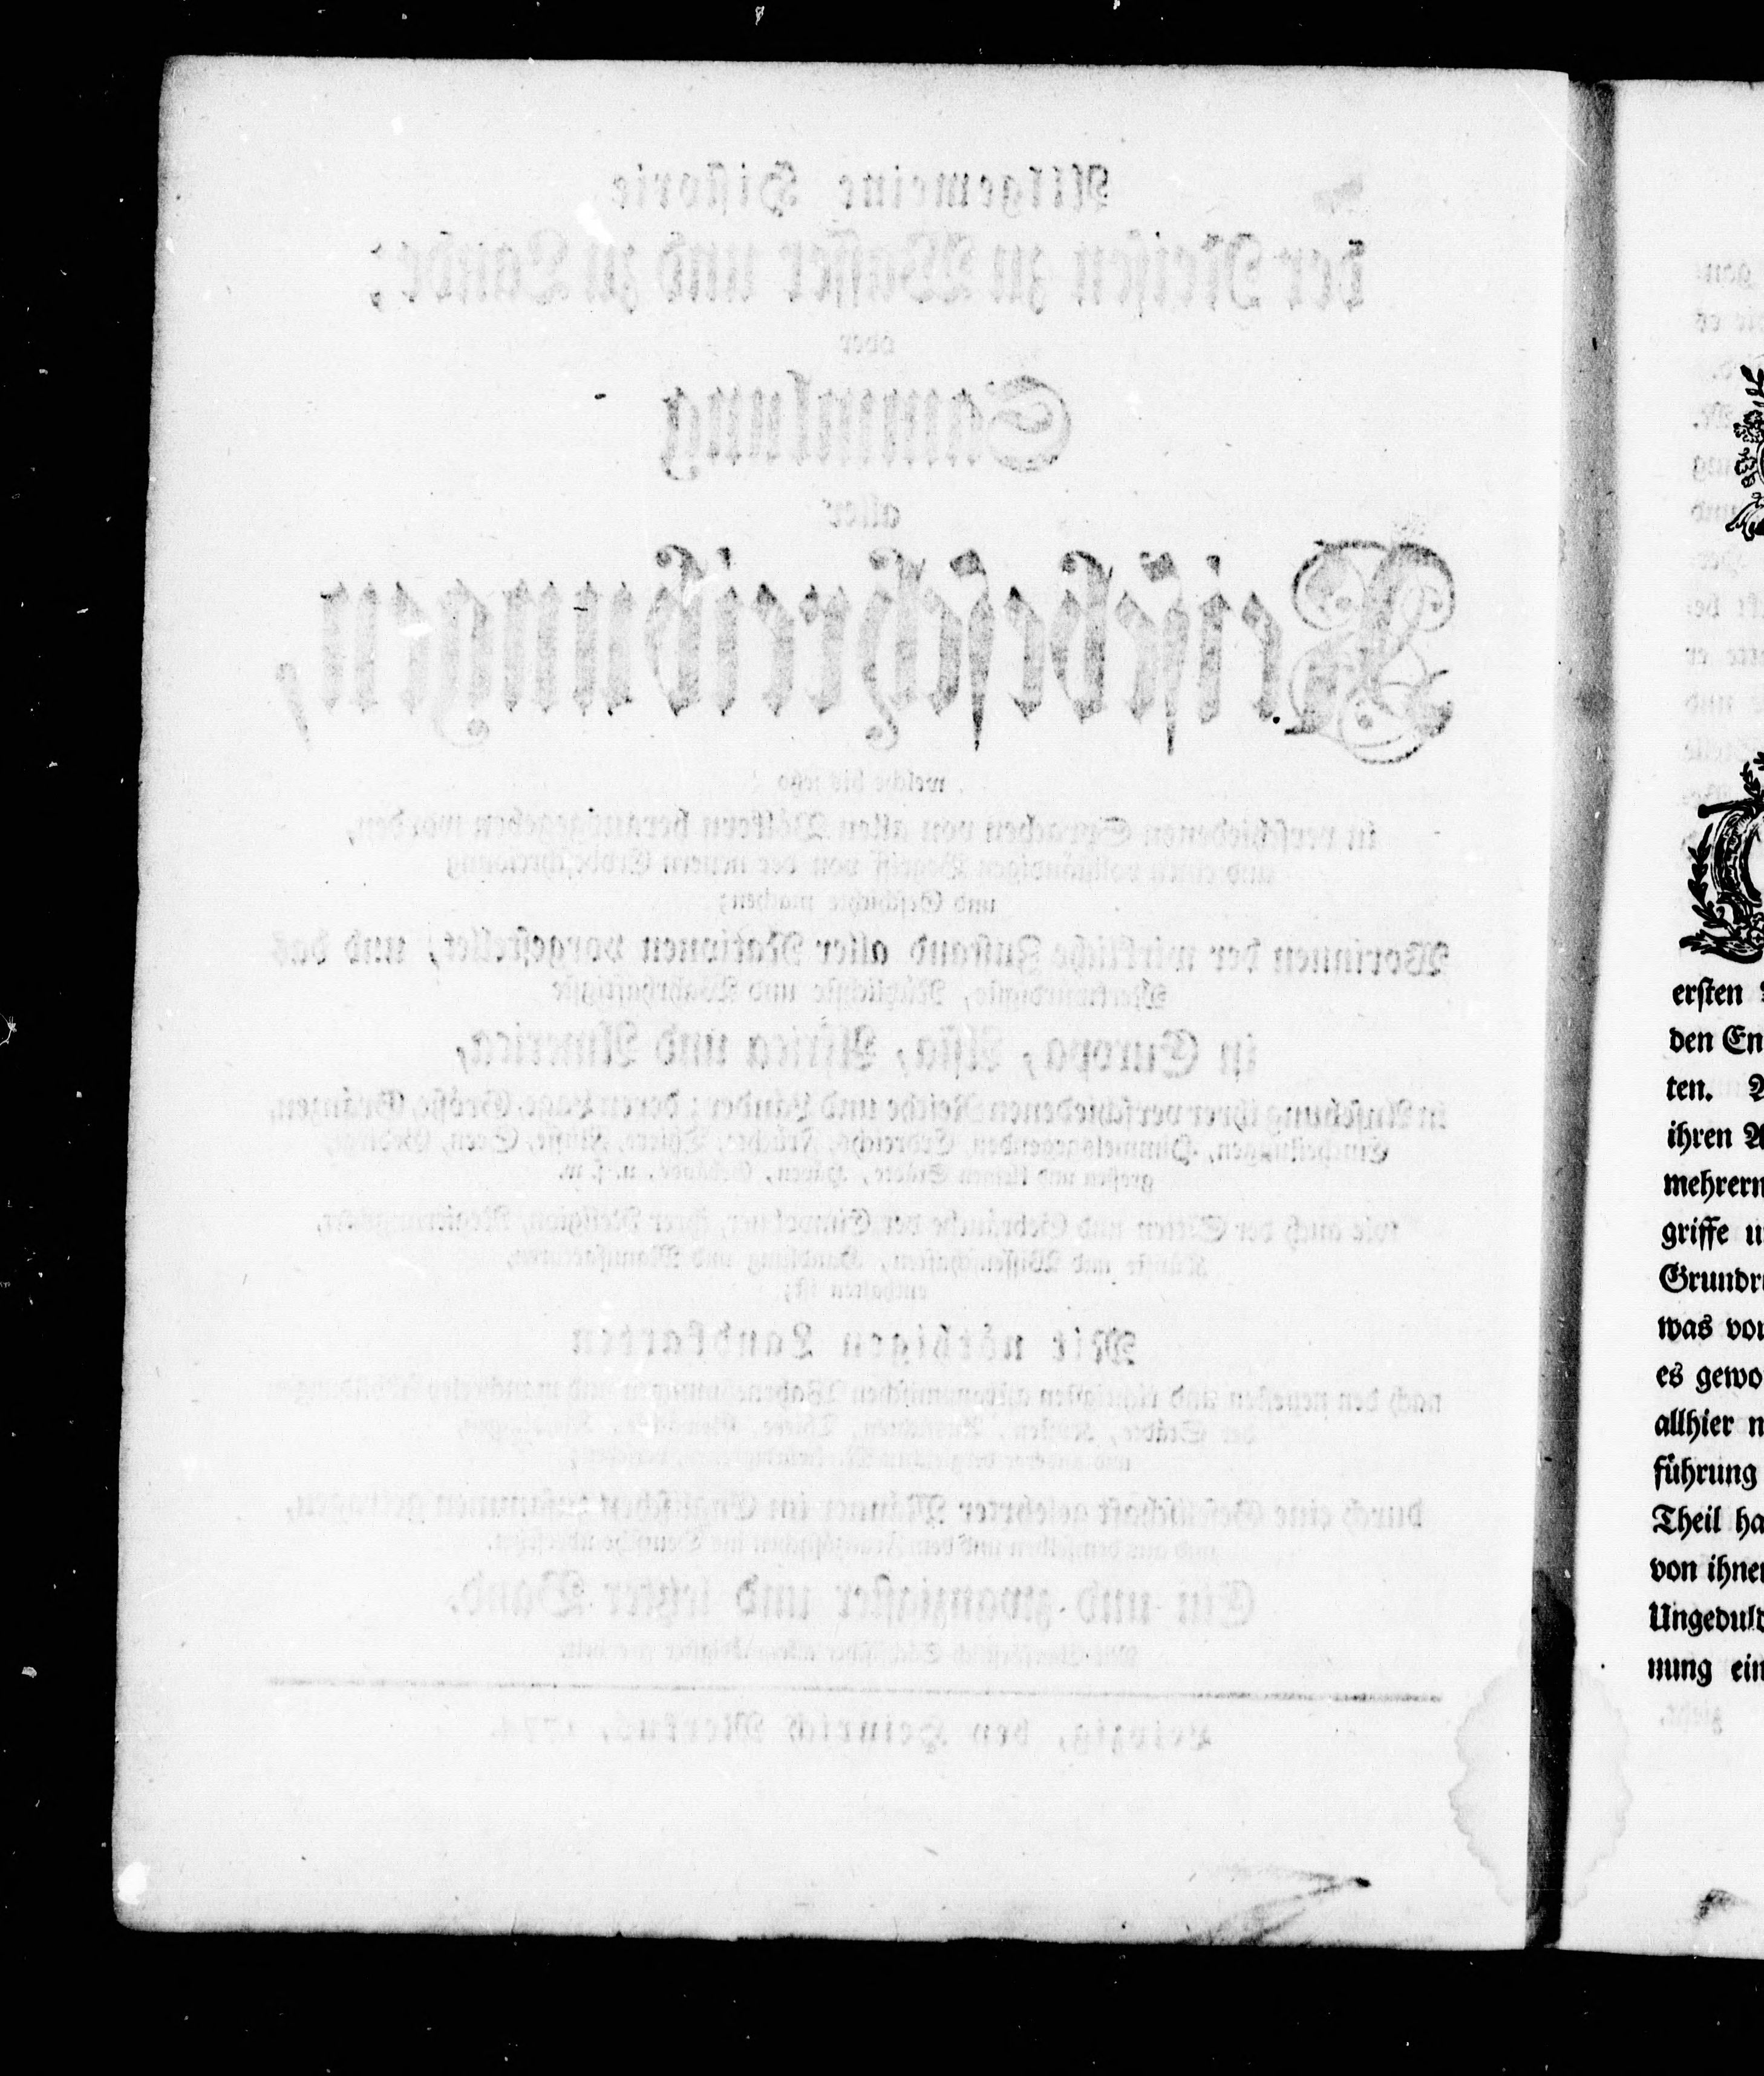 Allgemeine Historie
der Reisen zu Wasser und zu Lande;
oder
Sammlung
aller
Reisebeschreibungen,
welche bis itzo
in verschiedenen Sprachen von allen Völkern herausgegeben worden,
und einen vollständigen Begriff von der neuern Erdbeschreibung
und Geschichte machen;
Worinnen der wirkliche Zustand aller Nationen vorgestellet, und das
Merkwürdigste, Nützlichste und Wahrhaftigste
in Europa, Asia, Africa und America,
in Ansehung ihrer verschiedenen Reiche und Länder; deren Lage, Größe, Gränzen,
Eintheilungen, Himmelsgegenden, Erdreichs, Früchte, Thiere, Flüsse, Seen, Gebirge,
großen und kleinen Städte, Häfen, Gebäude, u. s. w.
wie auch der Sitten und Gebräuche der Einwohner, ihrer Religion, Regierungsart,
Künste und Wissenschaften, Handlung und Manufacturen,
enthalten ist;
Mit nöthigen Landkarten
nach den neuesten und richtigsten astronomischen Wahrnehmungen und mancherley Abbildungen
der Städte, Küsten, Aussichten, Thiere, Gewächse,
und anderer dergleichen Merkwürdigkeiten, versehen;
durch eine Gesellschaft gelehrter Männer im Englischen zusammen getragen,
und aus demselben und dem Französischen ins Deutsche übersetzet.
Ein und zwanzigster und letzter Band.
Leipzig, bey Heinrich Merkus, 1774.
ersten
den En
ten.
ihren A
mehrern
griffe u
Grundr
was vor
es gewo
allhier n
führung
Theil ha
von ihne
Ungeduld
nung ein